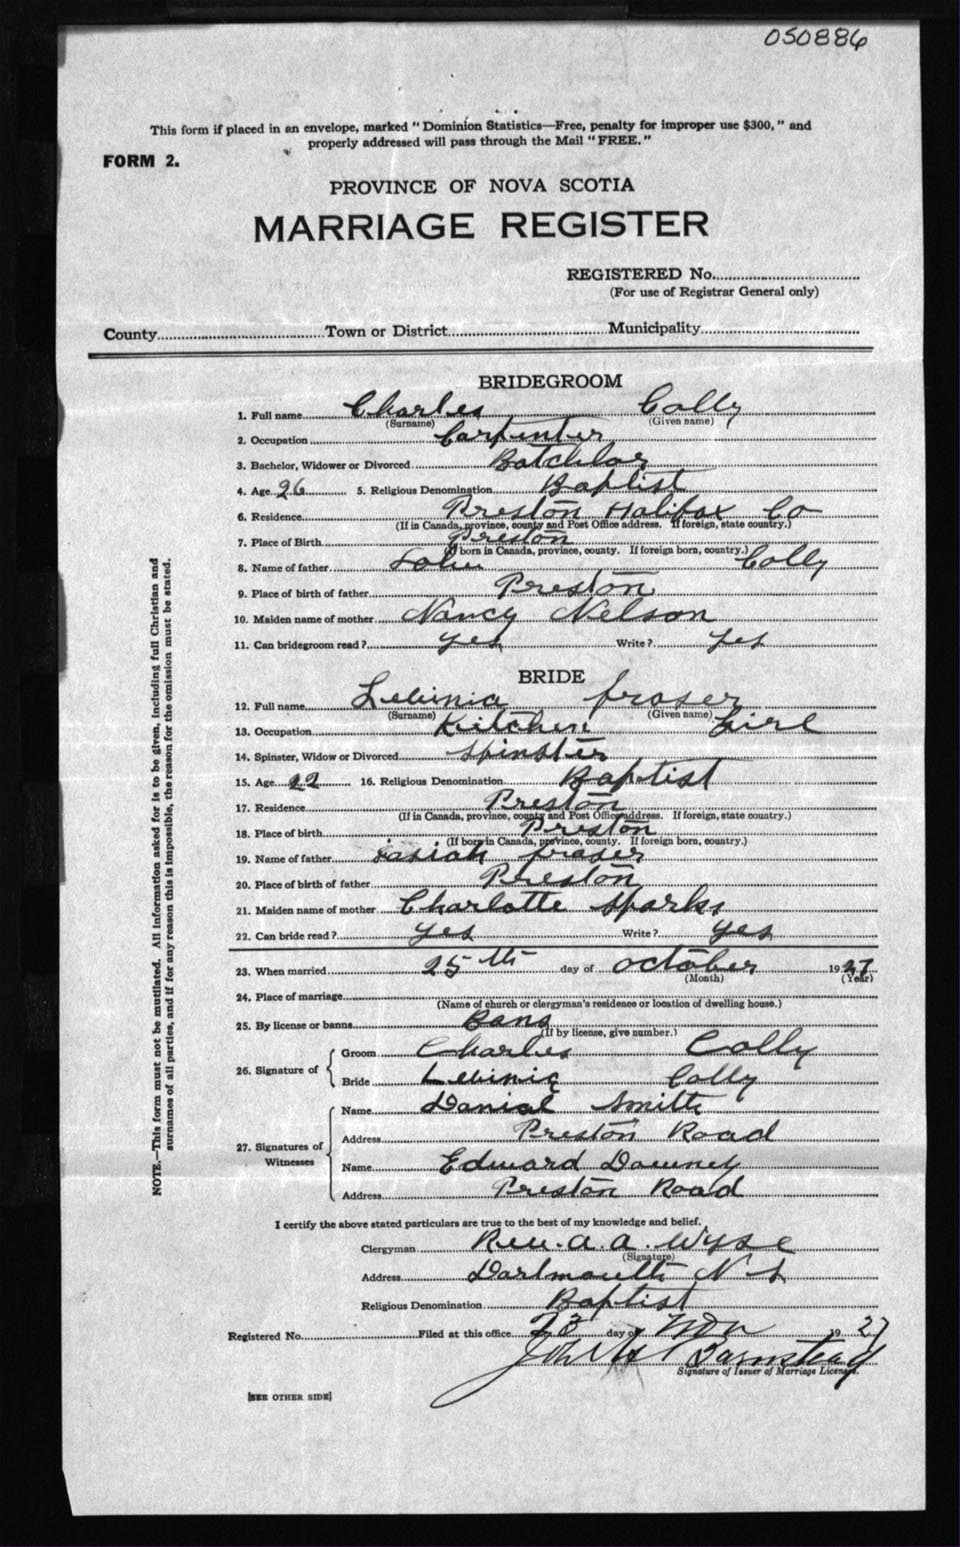 050886
This form if placed in an envelope, marked "Dominion Statistics—Free, penalty for improper use $300," and
properly addressed will pass through the Mail "FREE."
FORM 2.
PROVINCE OF NOVA SCOTIA
MARRIAGE REGISTER
REGISTERED No.
(For use of Registrar General only)
County Town or District Municipality
BRIDEGROOM
1. Full name Charles Colly
(Surname) (Given name)
2. Occupation Carpenter
3. Bachelor, Widower or Divorced Batchlor
4. Age 26 5. Religious Denomination Baptist
6. Residence Preston Halifax Co
(If in Canada, province, county and Post Office address. If foreign, state country.)
7. Place of Birth Preston
(If born in Canada, province, county. If foreign born, country.)
8. Name of father John Colly
9. Place of birth of father Preston
10. Maiden name of mother Nancy Nelson
11. Can bridegroom read? yes Write? yes
BRIDE
12. Full name Lebinia fraser
(Surname) (Given name)
13. Occupation Kitchen Girl
14. Spinster, Widow or Divorced spinster
15. Age 22 16. Religious Denomination Baptist
17. Residence Preston
(If in Canada, province, county and Post Office address. If foreign, state country.)
18. Place of birth Preston
(If born in Canada, province, county. If foreign born, country.)
19. Name of father isaiah fraser
20. Place of birth of father Preston
21. Maiden name of mother Charlotte Sparks
22. Can bride read? yes Write? yes
23. When married 25th day of October 1927
(Month) (Year)
24. Place of marriage
(Name of church or clergyman's residence or location of dwelling house.)
25. By license or banns Bans
(If by license, give number.)
26. Signature of
Groom Charles Colly
Bride Lebinia Colly
27. Signatures of Witnesses
Name Danial Smith
Address Preston Road
Name Edward Downey
Address Preston Road
I certify the above stated particulars are true to the best of my knowledge and belief.
Clergyman Rev. A. A. Wyse
(Signature)
Address Dartmouth N S
Religious Denomination Baptist
Registered No. Filed at this office 23 day of Nov 1927
Barnstead
Signature of Issuer of Marriage Licenses.
[SEE OTHER SIDE]
NOTE.—This form must not be mutilated. All information asked for is to be given, including full Christian and
surnames of all parties, and if for any reason this is impossible, the reason for the omission must be stated.